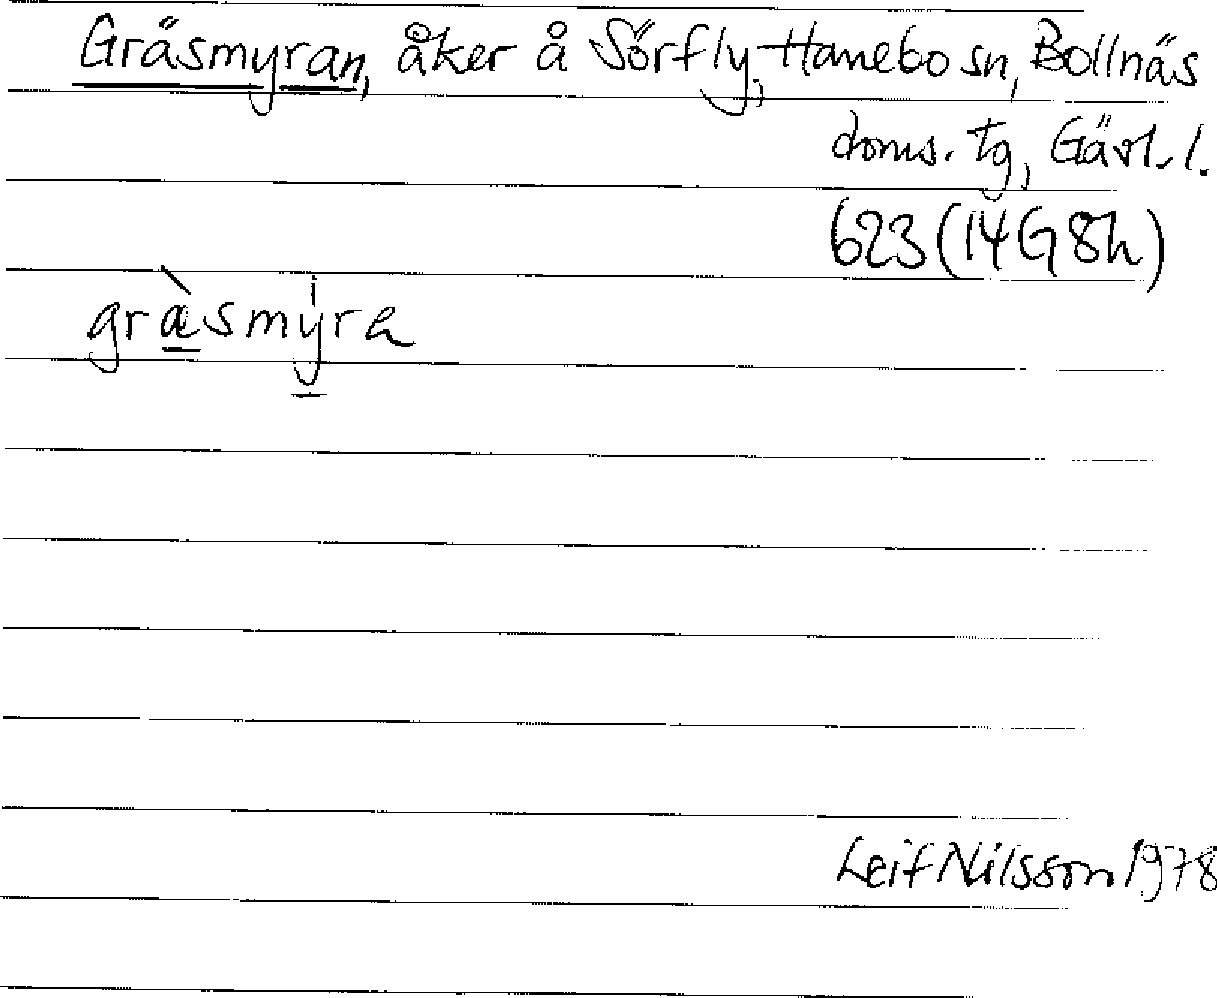 Gräsmyran, åker å Sörfly, Hanebo sn, Bollnäs
doms. tg, Gävl. l.
623 (14G 8h)
gràsmyra
Leif Nilsson 1978